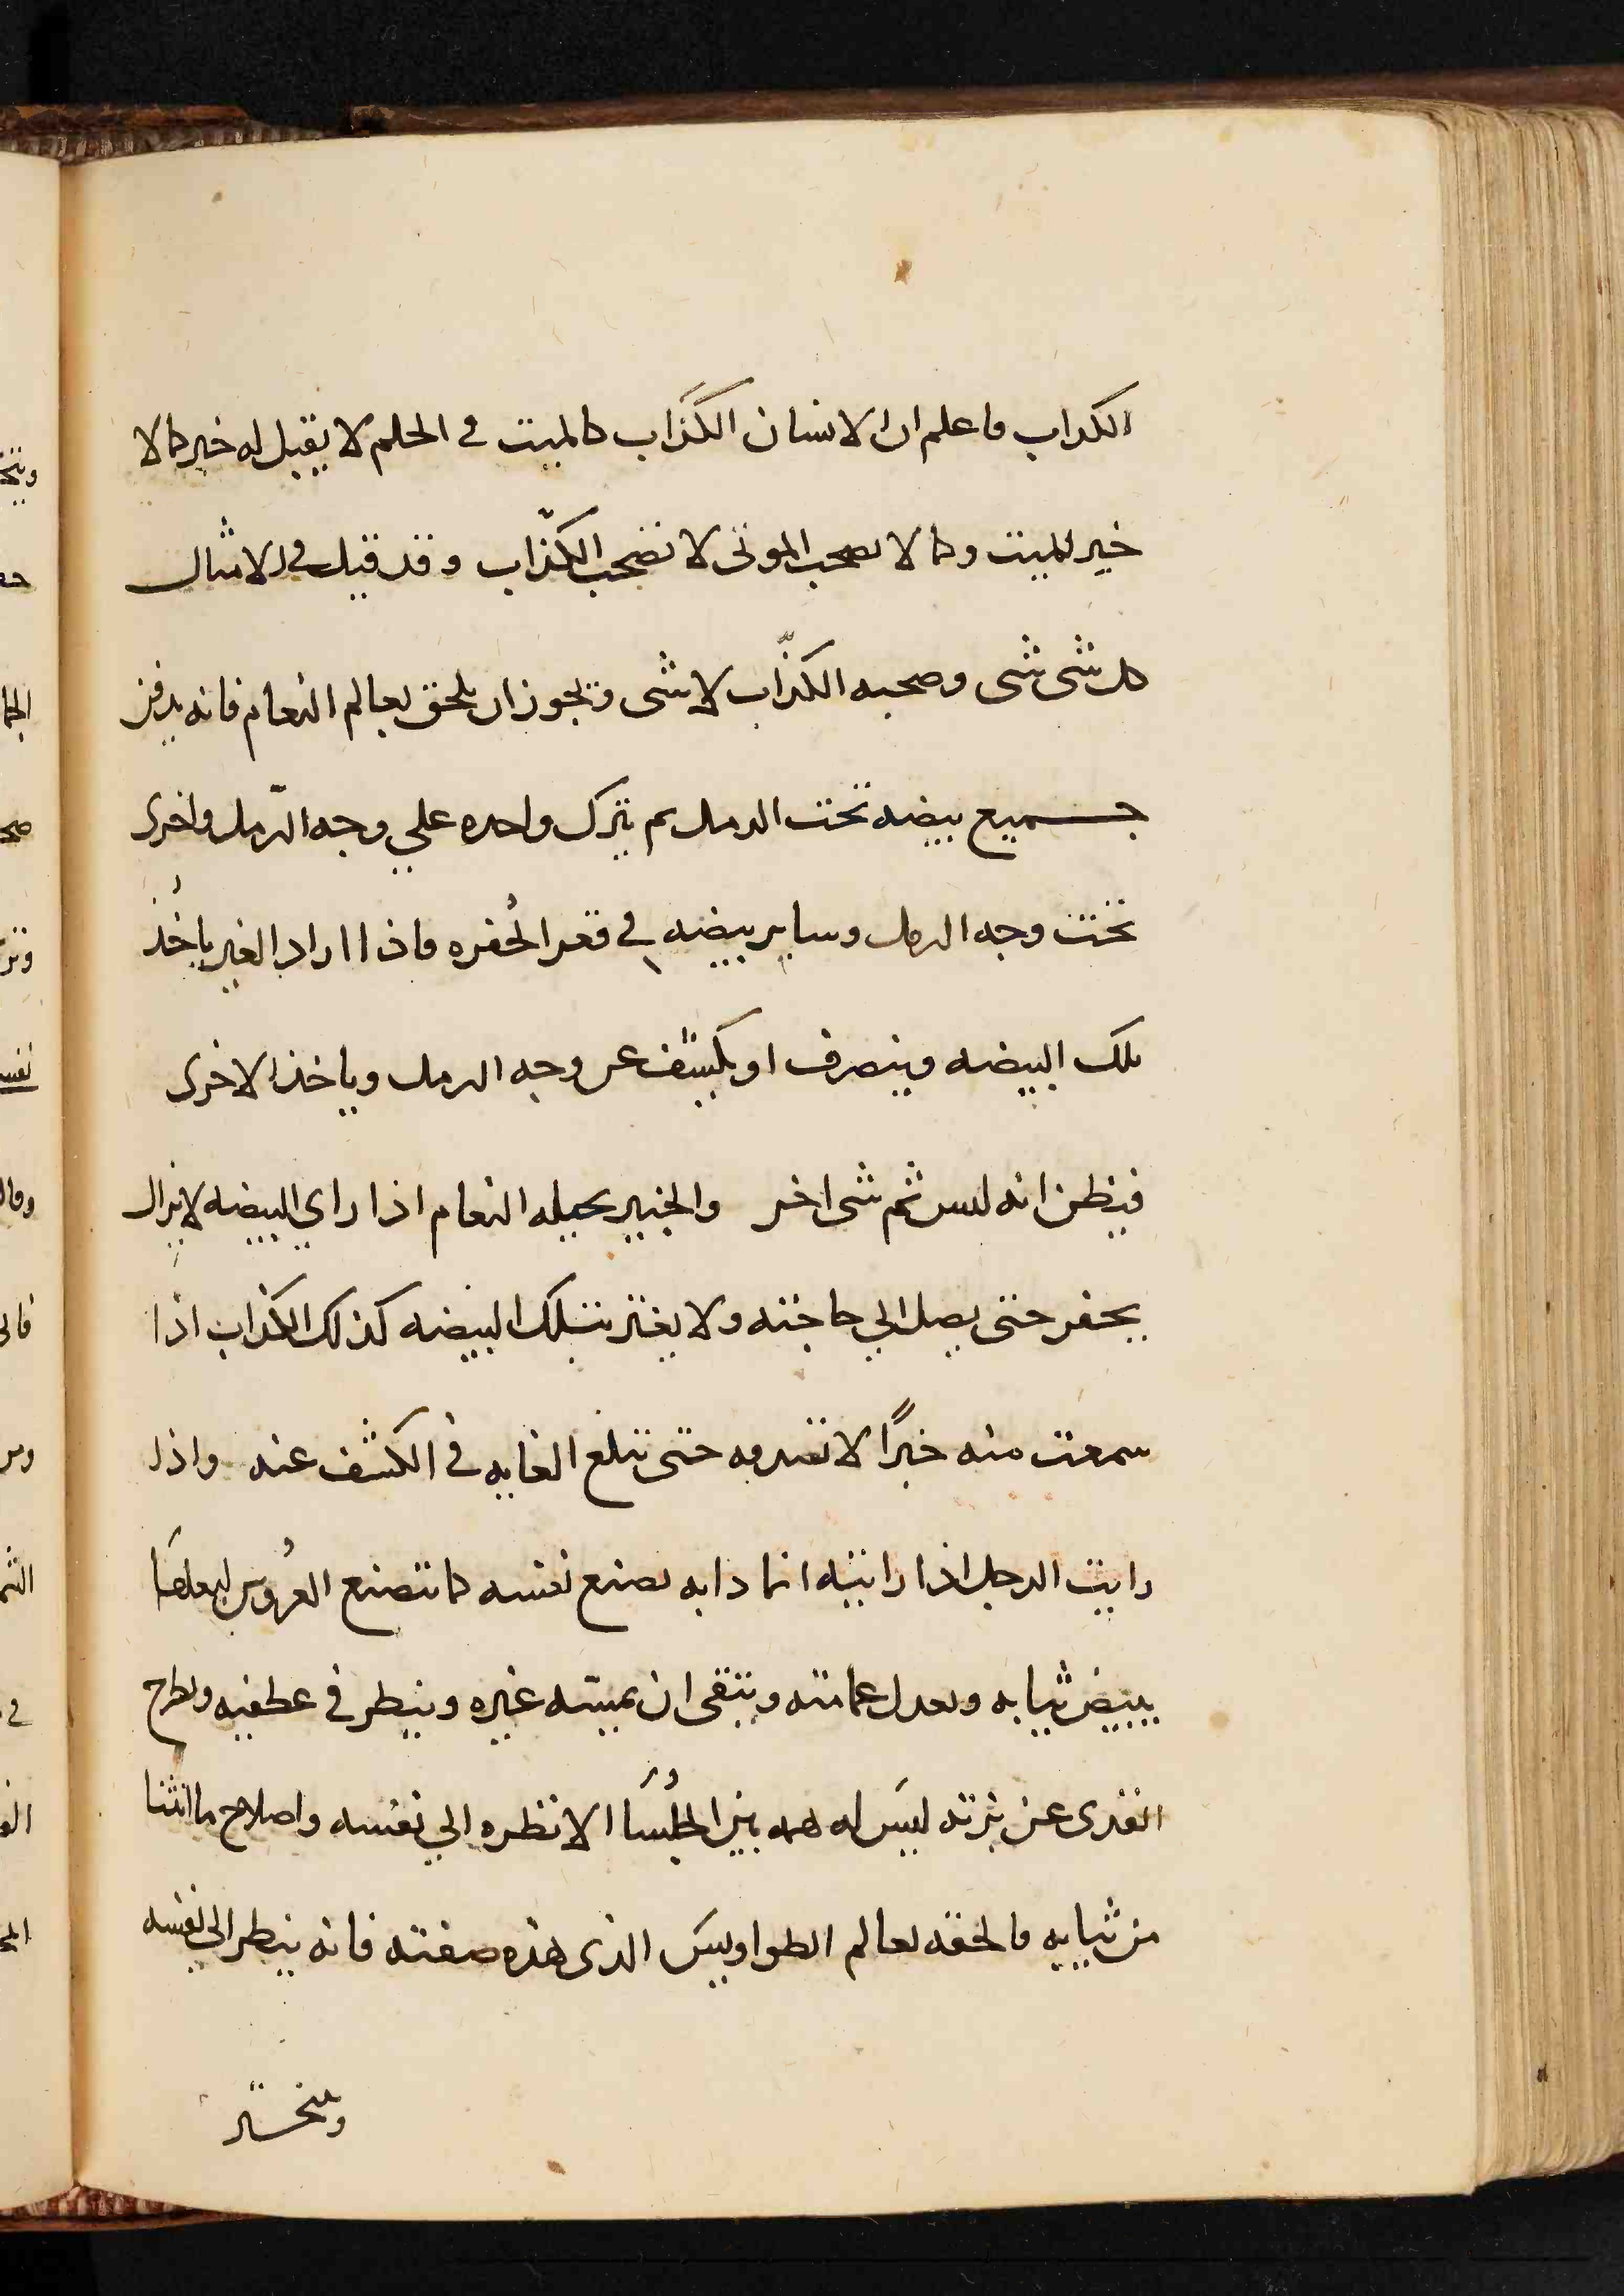 الكداب فاعلم ان الانسان الكذاب كالميت في الحلم لا يقبل له خبر كما لا
خير للميت وكما لا تصحب الموتى لا تصحب الكذّاب وقد قيل في الامثال
كل شى شى وصحبه الكذّاب لا شى ويجوز ان يلحق بعالم النعام فانه يدفن
جميع بيضه تحت الرمل ثم يترك واحده علي وجه الرّمل واخرى
تحت وجه الرمل وساير بيضه في قعر الحُفره فاذا اراد الغير ياخُذ
تلك البيضه وينصرف او يكشف عن وجه الرمل وياخذ الاخرى
فيظن انه ليس ثم شى اخر والخبير بحيله النعام اذا راي البيضه لا يزال
يحفر حتى يصل الي حاجته ولا يغتر بتلك البيضه كذلك الكذاب اذا
سمعت منه خبرًا لا تصدقه حتى تبلغ الغايه في الكشف عنه واذا
رايت الرجل اذا رايته انما دابه يصنع نفسه كما تتصنع العُروس لبعلها
يبيض ثيابه ويعدل عمامته ويتقى ان يمسه غيره وينظر في عطفيه ويطرح
القذى عن بزته ليس له همه بين الجُلسَا الا نظره الي نفسه واصلاح ما انثنا
من ثيابه فالحقه بعالم الطواويس الذى هذه صفته فانه ينظر الي نفسه